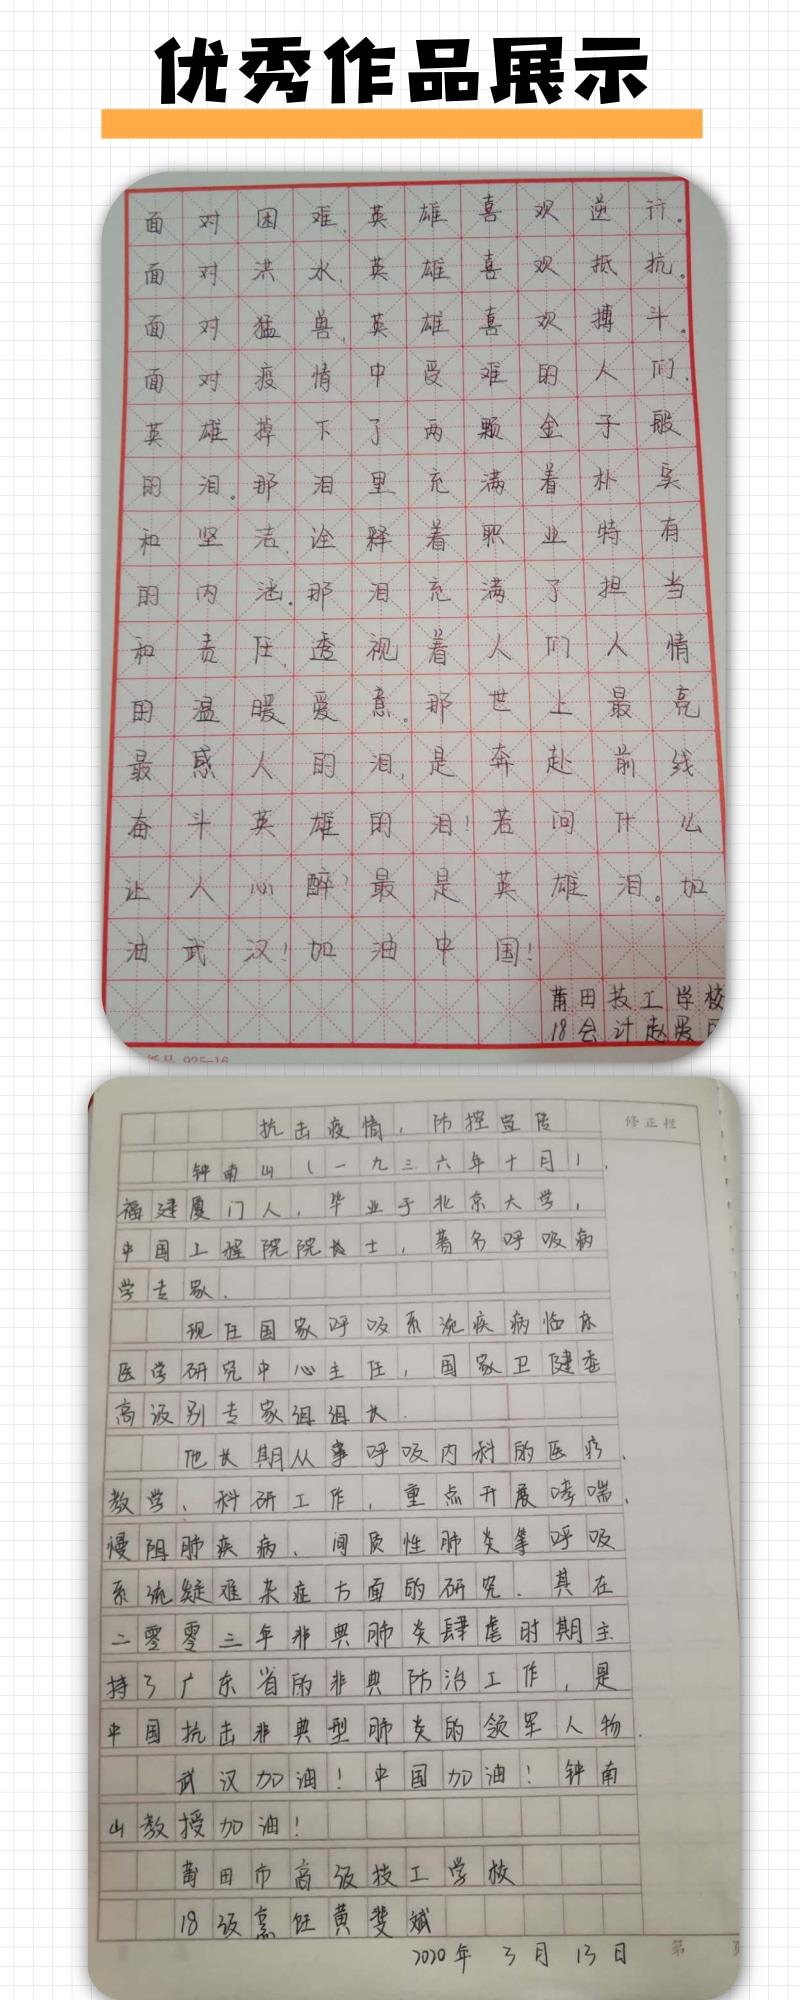 优秀作品展示
面对困难,英雄喜欢逆行。
面对洪水,英雄喜欢抵抗。
面对猛兽,英雄喜欢搏斗。
面对疫情中受难的人们,
英雄掉下了两颗金子般
的泪。那泪里充满着朴实
和坚洁,诠释着职业特有
的内涵。那泪充满了担当
和责任,透视着人们人情
的温暖爱意。那世上最亮
最感人的泪,是奔赴前线
奋斗英雄的泪!若问什么
让人心醉?最是英雄泪。加
油武汉!加油中国!
莆田技工学校
18会计赵爱
925-16
修正栏
抗击疫情,防控宣传
钟南山(一九三六年十月),
福建厦门人,毕业于北京大学,
中国工程院院士,著名呼吸病
学专家.
现任国家呼吸系统疾病临床
医学研究中心主任,国家卫健委
高级别专家组组长.
他长期从事呼吸内科的医疗、
教学、科研工作,重点开展哮喘、
慢阻肺疾病、间质性肺炎等呼吸
系统疑难杂症方面的研究.其在
二零零三年非典肺炎肆虐时期主
持了广东省的非典防治工作,是
中国抗击非典型肺炎的领军人物.
武汉加油!中国加油!钟南
山教授加油!
莆田市高级技工学校
18级烹饪黄斐斌
2020年3月13日
第 页